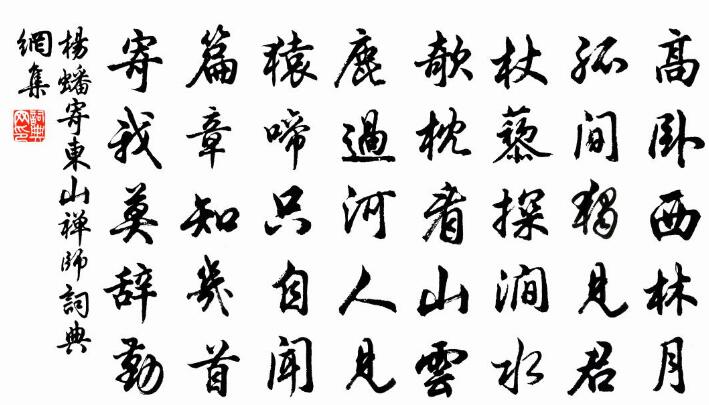 高卧西林月
孤间獨见君
杖藜探涧水
欹枕看山雲
鹿過河人见
猿啼只自闻
篇章知幾首
寄我莫辞勤
楊蟠寄東山禅師詞典
網集